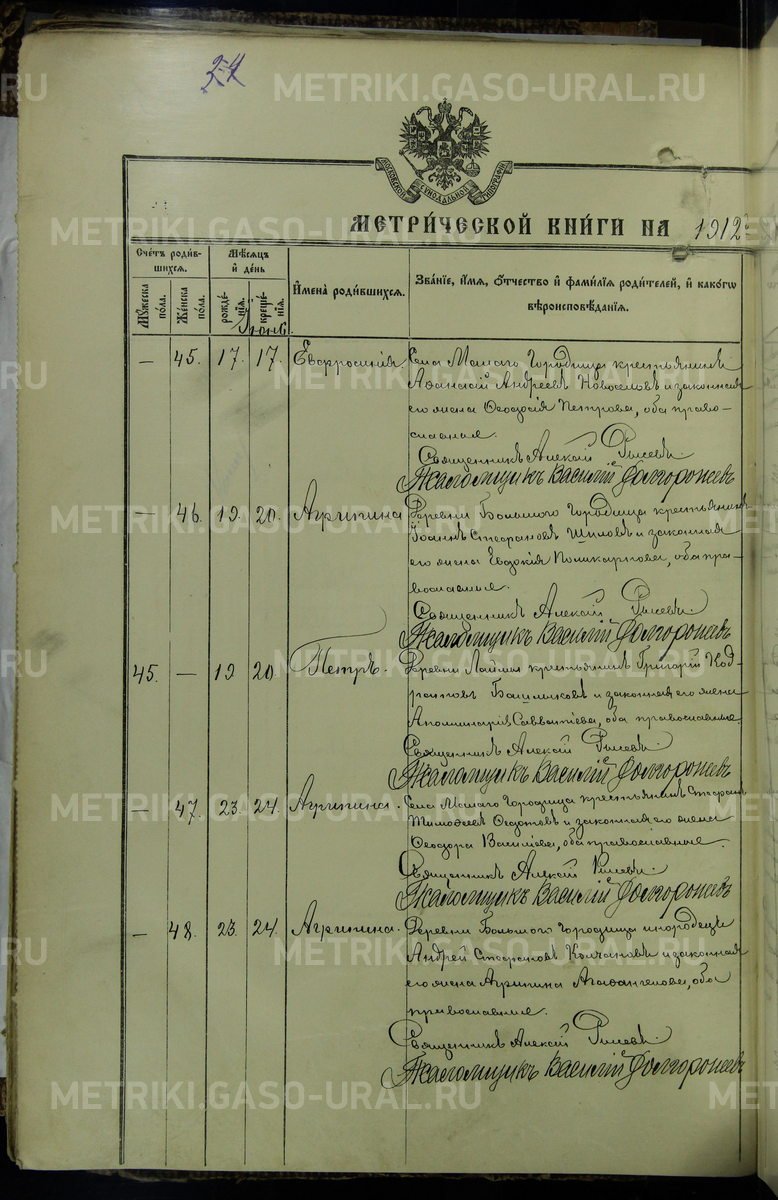 24
МОСКОВСКОЙ СѴНОДАЛЬНОЙ ТИПОГРАФІИ
МЕТРИ́ЧЕСКОЙ КНИ́ГИ НА 1912
Счетъ роди́вшихся.
Мѣ́сяцъ и де́нь
Имена̀ роди́вшихся.
Зва́ніе, и́мя, ѻ́тчество и фами́лїя роди́телей, и како́гѡ
вѣроисповѣ́данїя.
Му́жеска по́ла.
Же́нска по́ла.
рожде́нїя.
креще́нїя.
Іюнь
— 45. 17. 17. Евфросинія. Села Малаго Городища крестьянинъ
Аѳанасій Андреевъ Новоселовъ и законная
его жена Ѳеодосія Петрова, оба право-
славные.
Священникъ Алексій
Псаломщикъ Василій
— 46. 19. 20. Агрипина Деревни Большого Городища крестьянинъ
Іоаннъ Стефановъ Шиловъ и законная
его жена Евдокія Поликарпова, оба пра-
вославные.
Священникъ Алексій
Псаломщикъ Василій
45. — 19 20. Петръ. Деревни крестьянинъ Григорій Код-
ратовъ и законная его жена
Аполинарія Савватіева, оба православные.
Священникъ Алексій
Псаломщикъ Василій
— 47. 23. 24. Агрипина. Села Малаго Городища крестьянинъ Стефанъ
Тимоѳеевъ Ѳедотовъ и законная его жена
Ѳеодора Василіева, оба православные.
Священникъ Алексій
Псаломщикъ Василій
— 48. 23. 24. Агрипина. Деревни Большого Городища инородецъ
Андрей Стефановъ Колчановъ и законная
его жена Агрипина Агаѳангелова, оба
православные.
Священникъ Алексій
Псаломщикъ Василій
METRIKI.GASO-URAL.RU